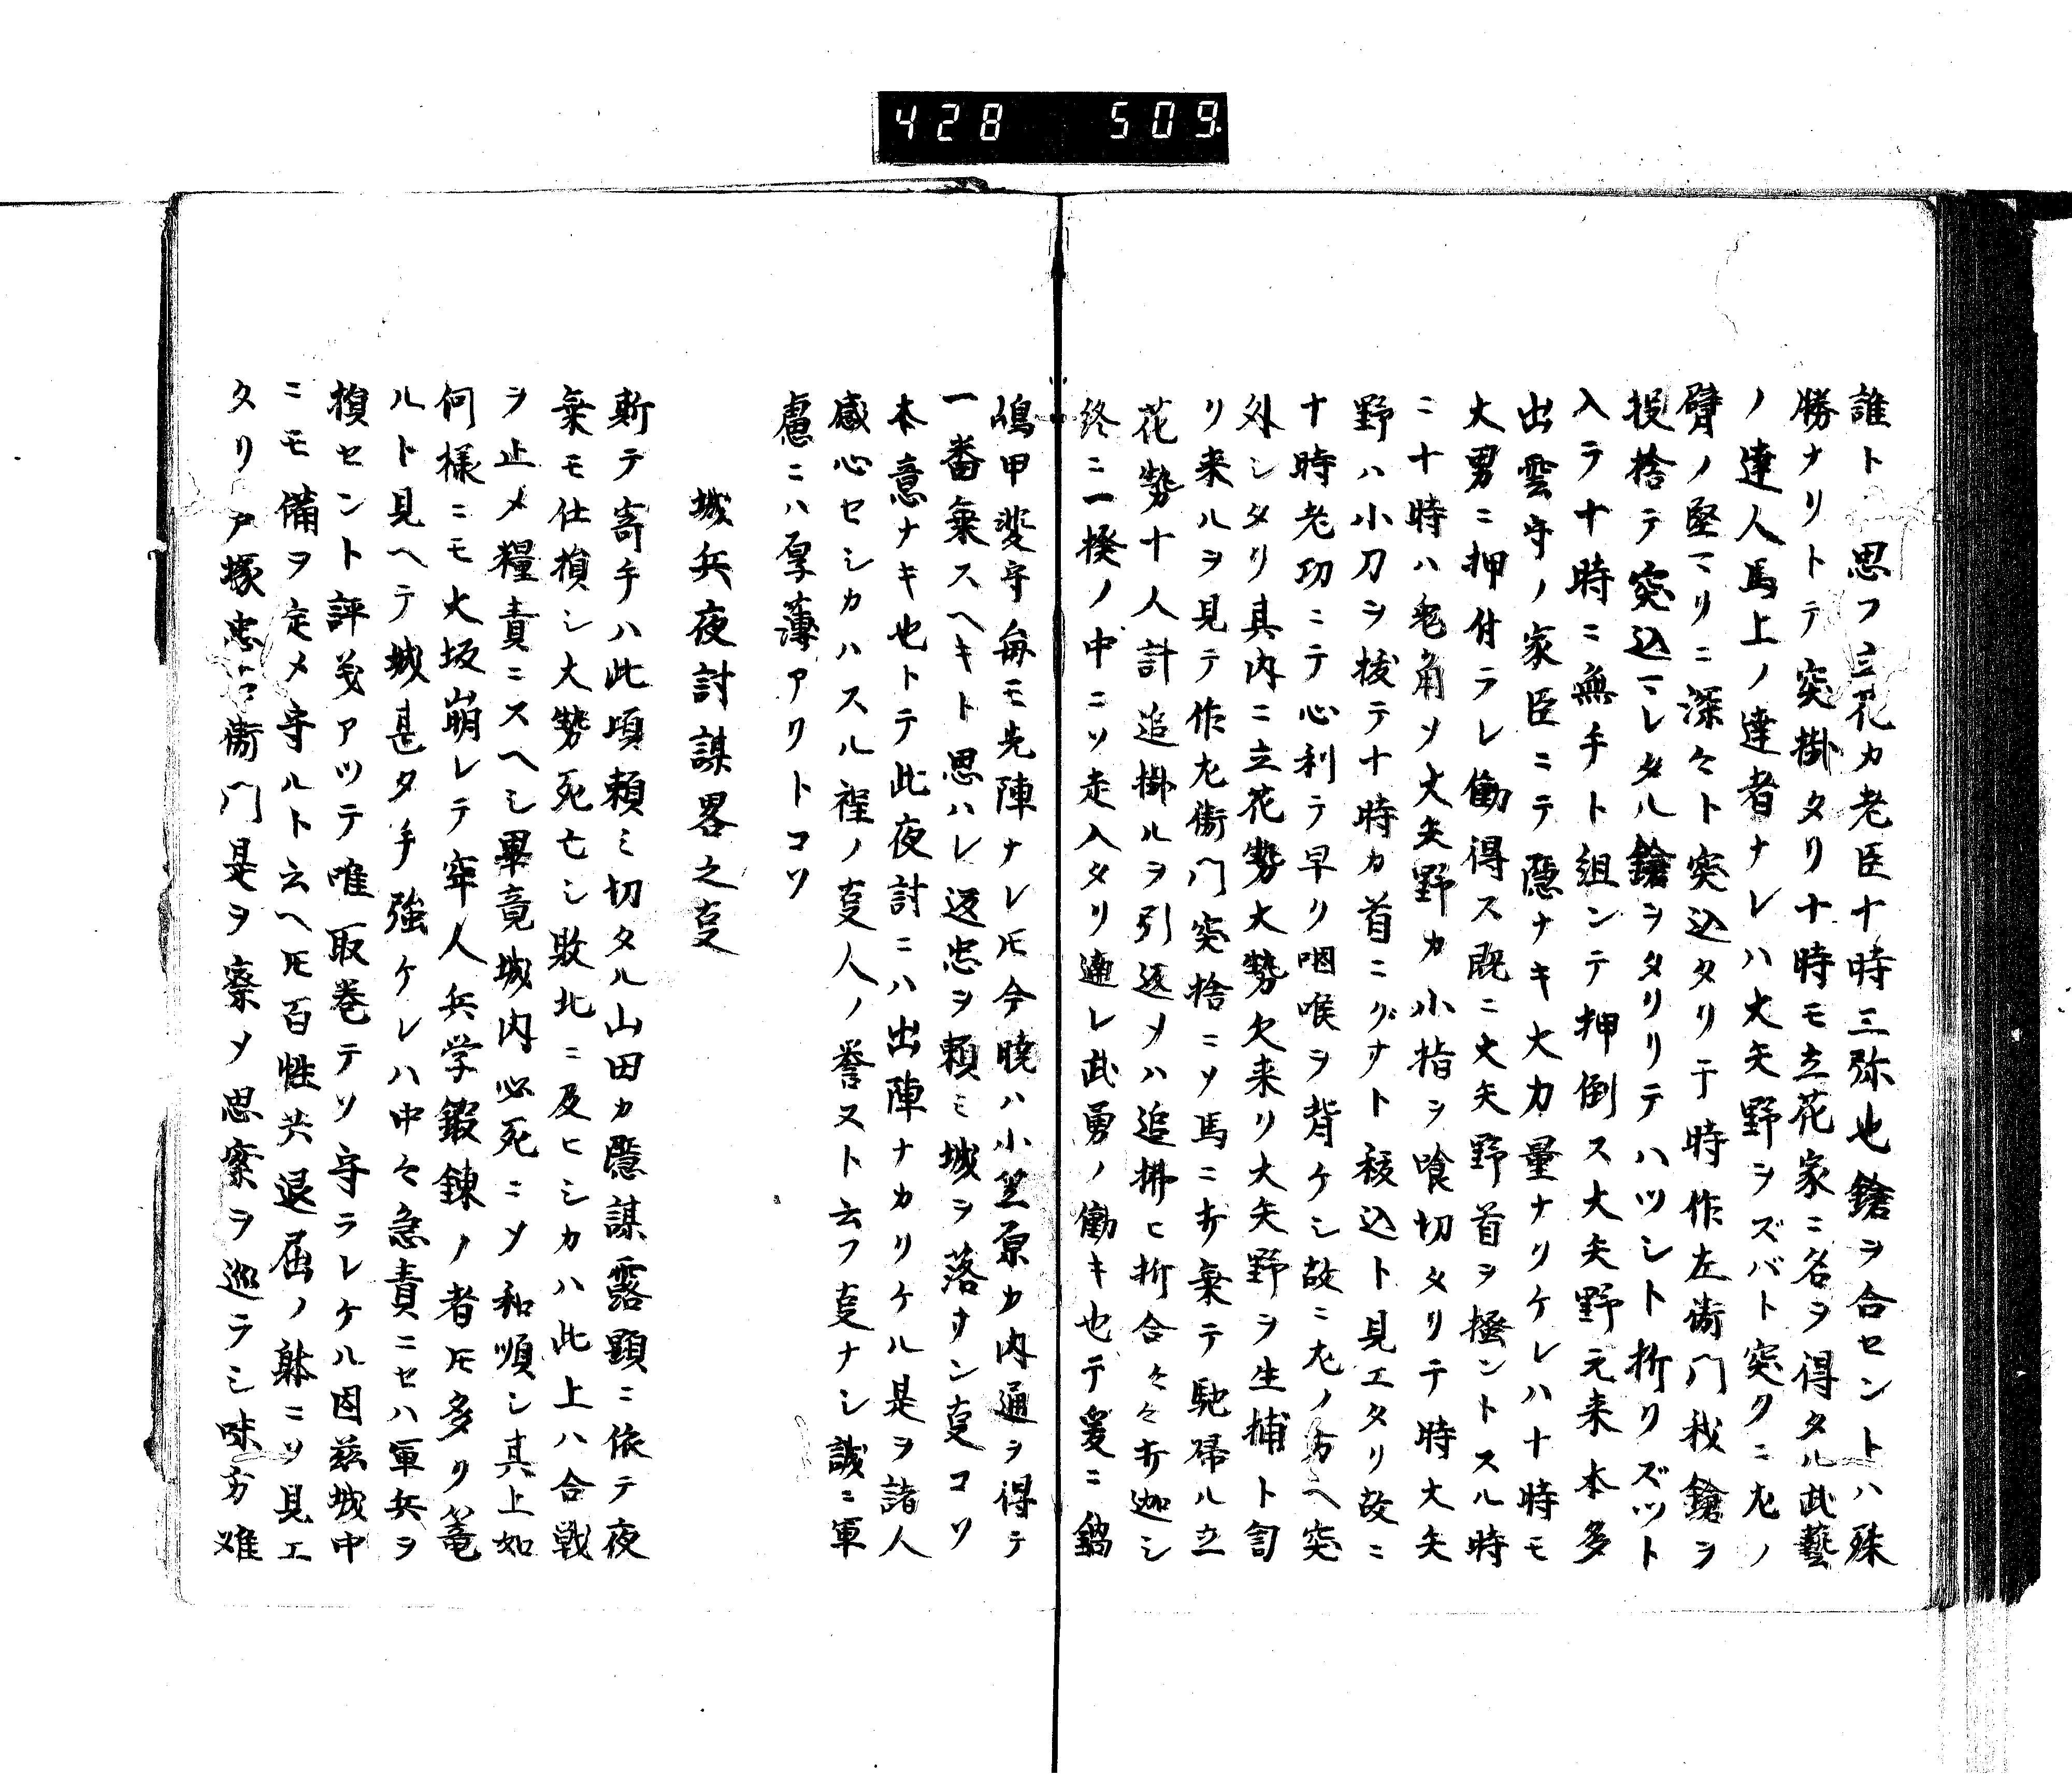 428 509.
誰ト思フ立花カ老臣十時三弥也鎗ヲ合セントハ殊
勝ナリトテ突掛タリ十時モ立花家ニ名ヲ得タル此藝
ノ達人馬上ノ達者ナレハ大矢野ヲズバト突クニ左ノ
臂ノ堅マリニ深々ト突込タリ于時作左衛門我鎗ヲ
投捨テ突込マレタル鎗ヲタリリテハツシト折リズツト
入ラ十時ニ無手ト組ンテ押倒ス大矢野元来本多
出雲守ノ家臣ニテ隠ナキ大力量ナリケレハ十時モ
大男ニ押付ラレ働得ス既ニ大矢野首ヲ掻ントスル時
ニ十時ハ兎角ソ大矢野カ小指ヲ喰切タリテ時大矢
野ハ小刀ヲ抜テ十時カ首ニグサト移込ト見エタリ故ニ
十時老功ニテ心利テ早リ咽喉ヲ背ケシ故ニ左ノ方ヘ突
外シタリ其内ニ立花勢大勢欠来リ大矢野ヲ生捕ト訇
リ来ルヲ見テ作左衛門突捨ニソ馬ニ打乗テ馳帰ル立
花勢十人計追掛ルヲ引返メハ追拂ヒ折合々々打迦シ
終ニ一揆ノ中ニソ走入タリ遖レ武勇ノ働キ也テ爰ニ鍋
嶋甲斐守毎モ先陣ナレ𪜈今暁ハ小笠原カ内通ヲ得テ
一番乗スヘキト思ハレ返忠ヲ頼ミ城ヲ落サン㕝コソ
本意ナキ也トテ此夜討ニハ出陣ナカリケル是ヲ諸人
感心セシカハスル裎ノ㕝人ノ誉ヌト云フ㕝ナシ誠ニ軍
慮ニハ厚薄アリトコソ
城兵夜討謀畧之㕝
斯テ寄手ハ此頃頼ミ切タル山田カ隠謀露顕ニ依テ夜
乗モ仕損シ大勢死亡シ敗北ニ及ヒシカハ此上ハ合戦
ヲ止メ糧責ニスヘシ畢竟城内必死ニソ和順シ其上如
何様ニモ大坂崩レテ牢人兵学鍜錬ノ者𪜈多リ篭
ルト見ヘテ城甚タ手強ケレハ中々急責ニセハ軍兵ヲ
損セント評㦮アツテ唯取巻テソ守ラレケル因茲城中
ニモ備ヲ定メ守ルト云ヘ𪜈百姓共退屈ノ躰ニソ見エ
タリ戸塚忠右衛門是ヲ察メ思案ヲ巡ラシ味方難